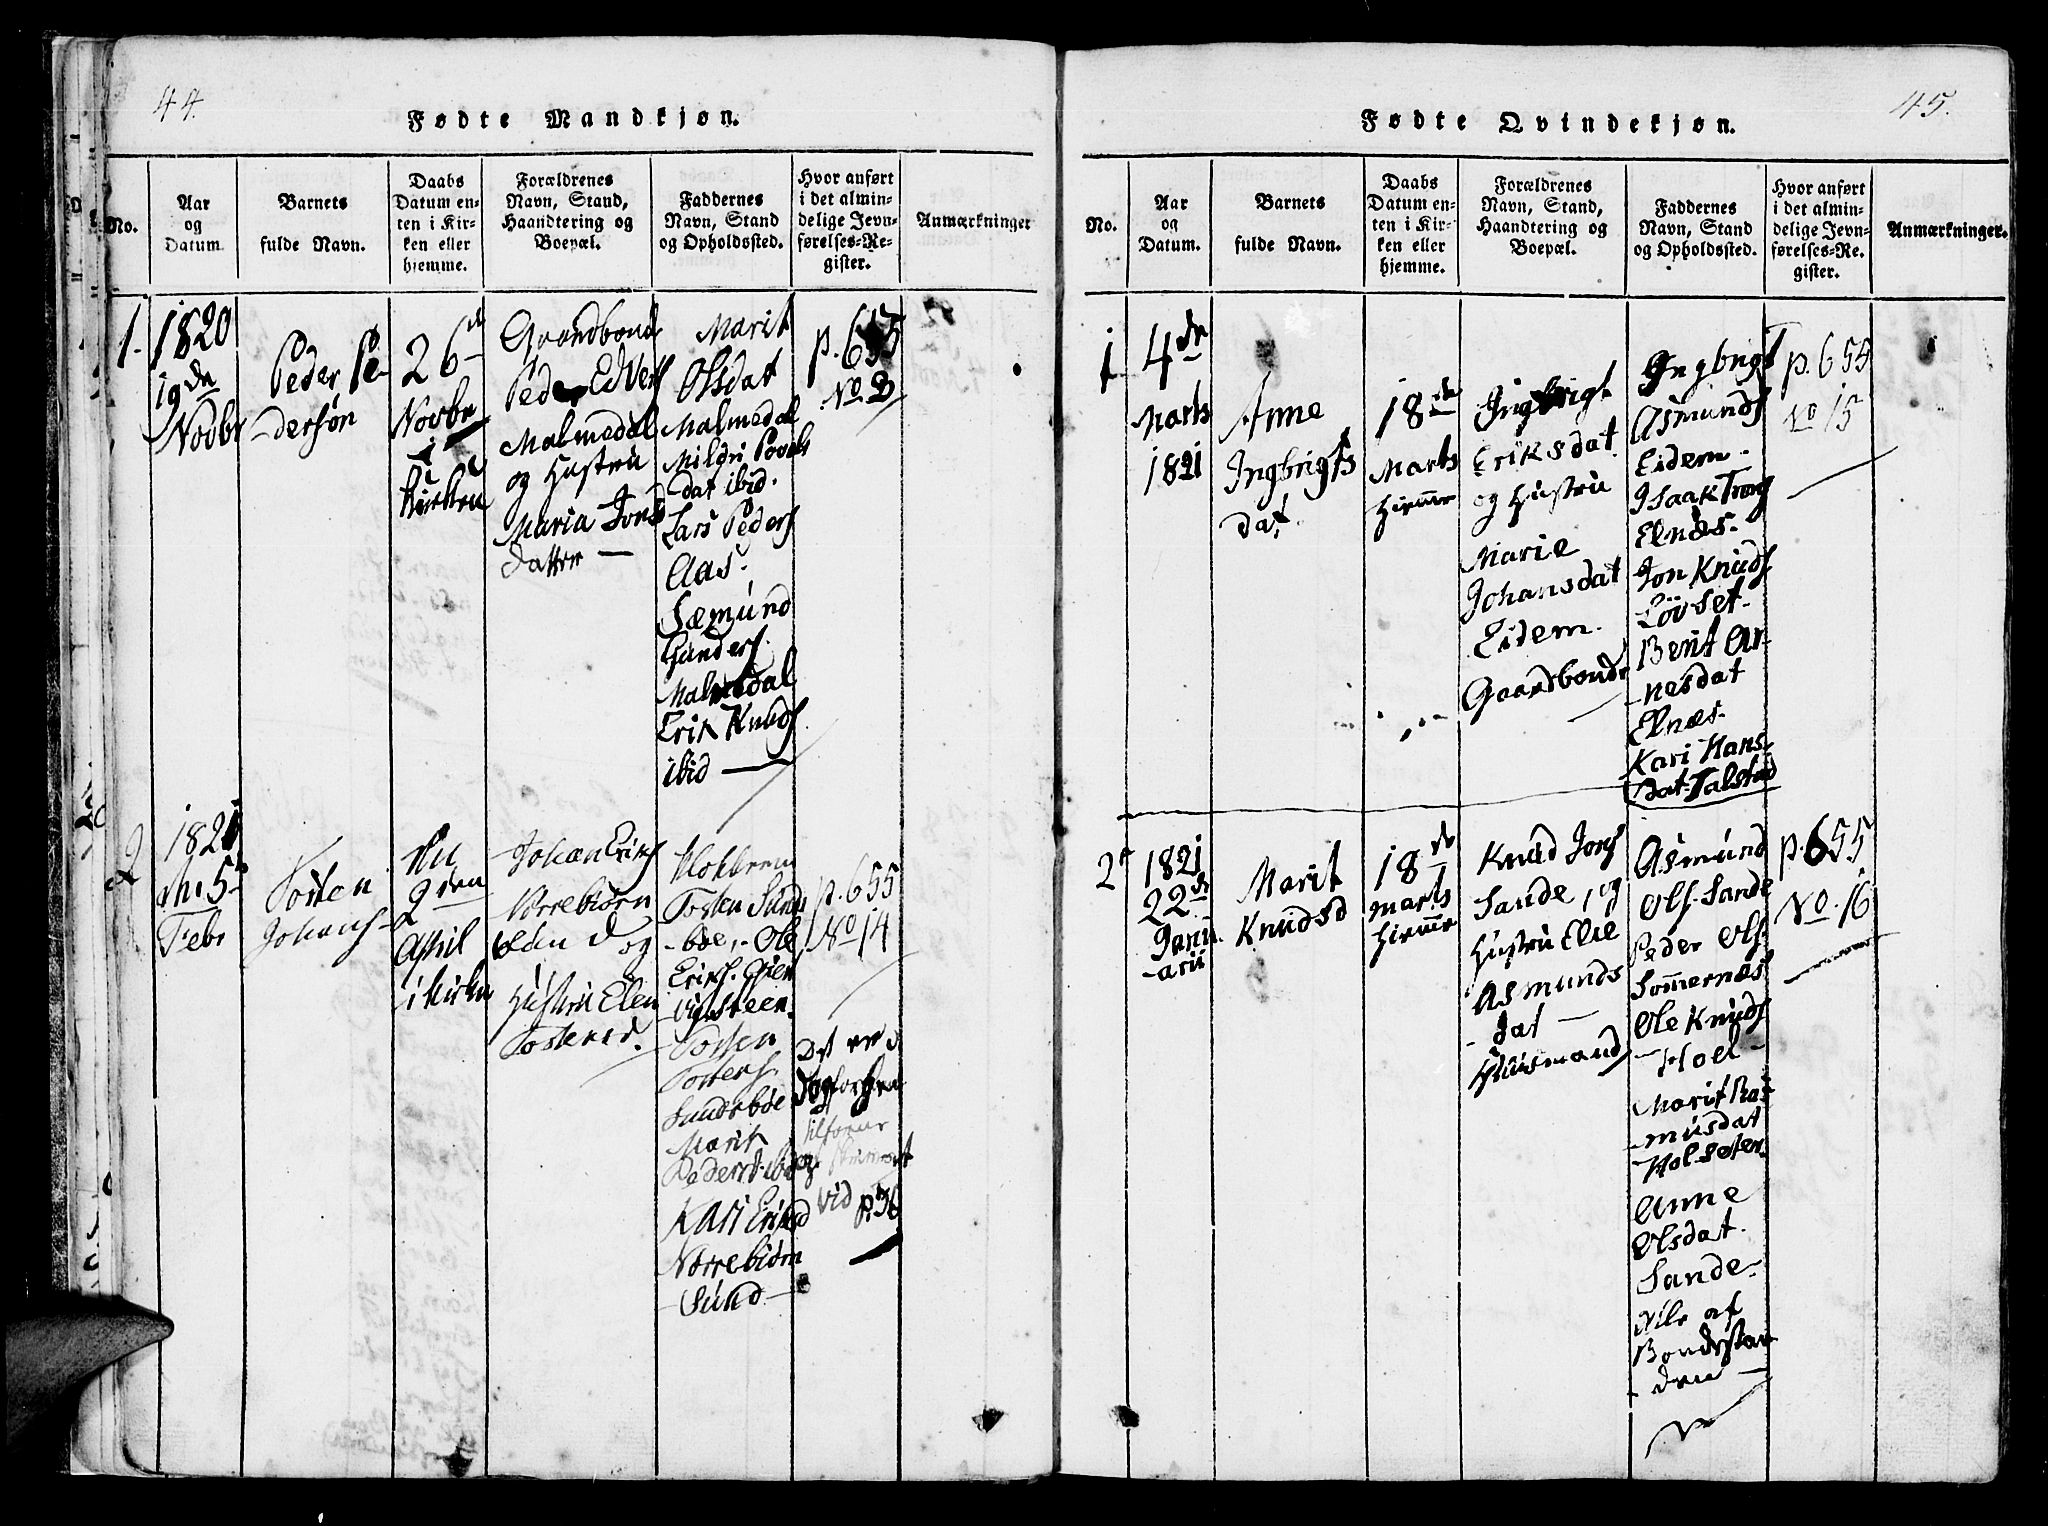 44.
Fødte Mandkjøn.
No.
Aar
og
Datum.
Barnets
fulde Navn.
Daabs
Datum en-
ten i Kir-
ken eller
hjemme.
Forældrenes
Navn, Stand,
Haandtering og
Boepæl.
Faddernes
Navn, Stand
og Opholdssted.
Hvor anført
i det almin-
delige Jevn-
førelses-Re-
gister.
Anmærkninger
1.
1820
19de
Novbr
Peder Pe-
-dersøn
26d
Novbr
i
Kirken
Gaardbonde
Peder Edvers
Malmedal
og Hustru
Maria Jons
datter —
Marit
Olsdat
Malmedal
Mildri Povels
-dat ibid.
Lars Peders
Aas.
Sæmund
Gunders.
Malmedal
Erik Knuds
ibid —
p. 655
No.
2
1821
d. 5
Febr
Tosten
Johans-
2den
April
i Kirken
Johan Eriks
Norrebiørn
Sund og
Hustru Elen
Tostensd.
Tosten Sunds
-bøe, - Ole
Eriks.
Tosten
Tostens.
Sundsbøe
Marit
Pedersd. ibid
Kari Eriksd
Norrebiørn
-Sund-
p. 655
No 14
vid p. 36
45.
Fødte Qvindekjøn.
No.
Aar
og
Datum.
Barnets
fulde Navn.
Daabs
Datum en-
ten i Kir-
ken eller
hjemme.
Forældrenes
Navn, Stand,
Haandtering og
Boepæl.
Faddernes
Navn, Stand
og Opholdssted.
Hvor anført
i det almin-
delige Jevn-
førelses-Re-
gister.
Anmærkninger.
1
4de
Marts
1821
Anne
Ingbrigts
dat.
18de
Marts
hiemme
Ingbrigt
Eriksdat
og Hustru
Marie
Johansdat
Eidem.
Gaardbonde
Ingbrigt
Asmunds
Eidem.
Isaak Trons
Elnæs.
Jon Knuds.
Løvset.
Berit Ar-
-nesdat
Elnæs.
Kari Hans-
dat Talstad
p. 655
No 15
2
1821
22de
Janu
-arii
Marit
Knudsd
18de
marts
hiemme
Knud Jons
Sande, og
Hustru Elie
Asmunds
-dat —
Huusmand
Asmund
Ols. Sande
Peder Ols.
Sommernæs
Ole Knuds
-Hoel-
Marit Ras
-musdat
-Holseter.
Anne
Olsdat.
Sande-
Alle af
Bondestan
-den —
p. 655
No. 16